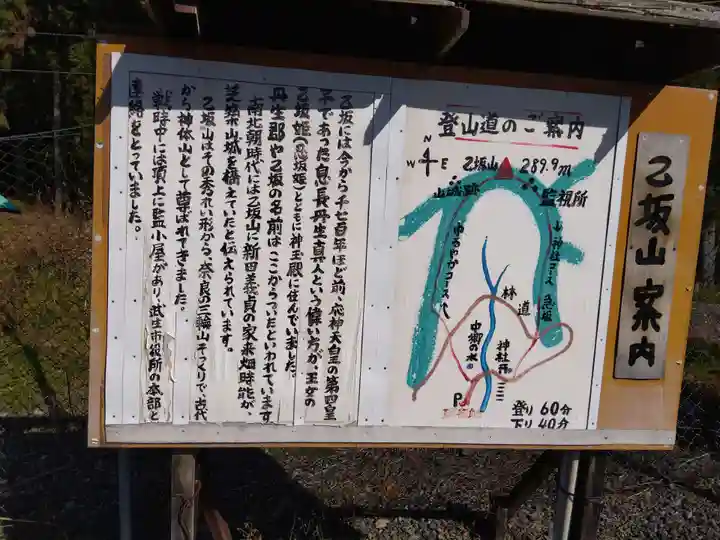 乙坂山案内
登山道のご案内
N
W E
乙坂山
289.9m
山城跡
監視所
ゆるやかコース
神社コース 急坂
林道
中郷の水
神社
P
登り60分
下り40分
乙坂には今から千七百年ほど前、応神天皇の第四皇
子であった息長丹生真人という偉い方が、王女の
乙坂姫(忍坂姫)とともに神玉殿に住んでいました。
丹生郡や乙坂の名前はここからついたといわれています
南北朝時代には乙坂山に新田義貞の家来畑時能が
芝築山城を構えていたと伝えられています。
乙坂山はその秀れい形から、奈良の三輪山そっくりで、古代
から神体山として尊ばれてきました。
戦時中には頂上に監小屋があり、武生市役所の本部と
連絡をとっていました。